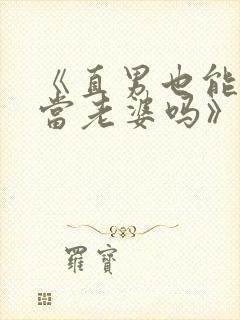 《直男也能
当老婆吗》
羅寶